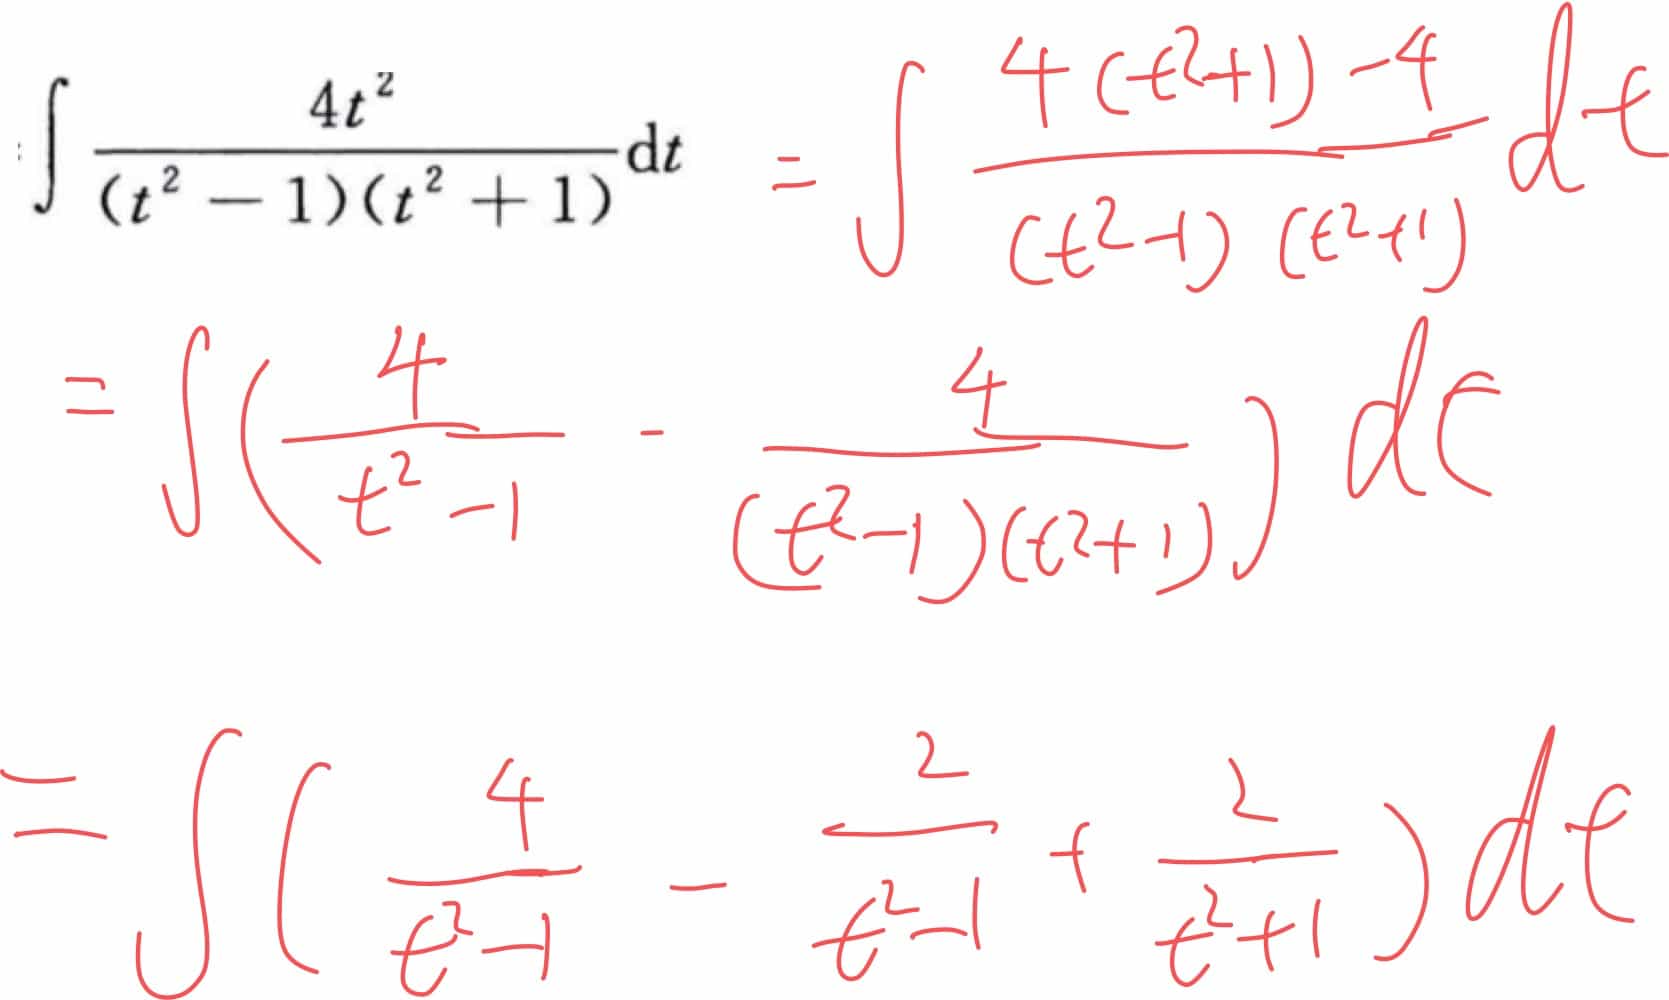 ∫ 4t²/((t² − 1)(t² + 1)) dt = ∫ (4(t²+1) −4)/((t²−1)(t²+1)) dt
= ∫ (4/(t²−1) − 4/((t²−1)(t²+1))) dt
= ∫ (4/(t²−1) − 2/(t²−1) + 2/(t²+1)) dt